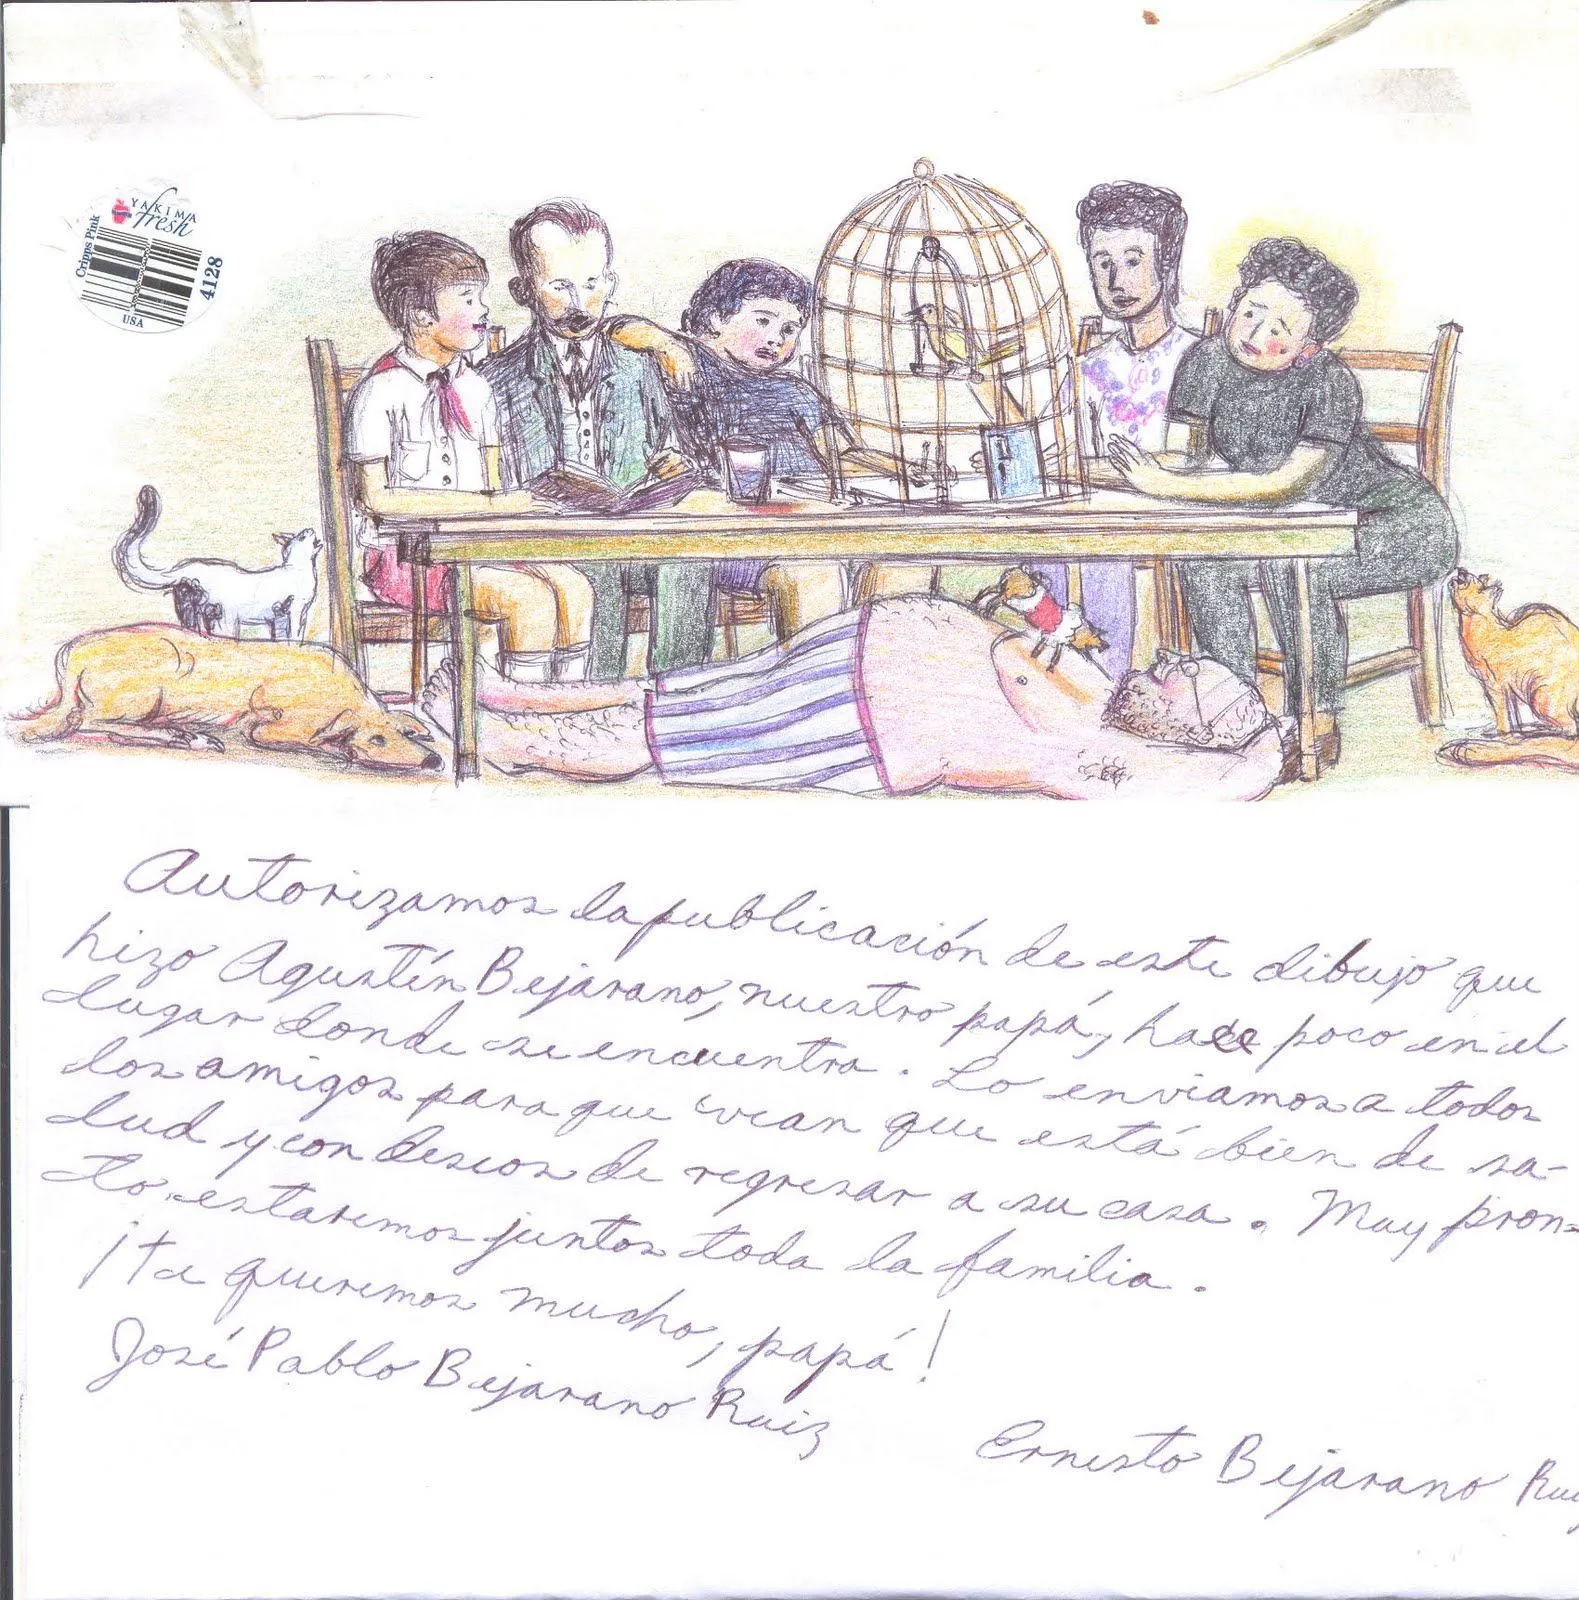 YAKIMA
fresh
Cripps Pink
4128
USA
Autorizamos la publicación de este dibujo que
hizo Agustín Bejarano, nuestro papá, hace poco en el
lugar donde se encuentra. Lo enviamos a todos
los amigos para que vean que está bien de sa-
lud y con deseos de regresar a su casa. Muy pron-
to estaremos juntos toda la familia.
¡te queremos mucho, papá!
José Pablo Bejarano Ruiz
Ernesto Bejarano Rui